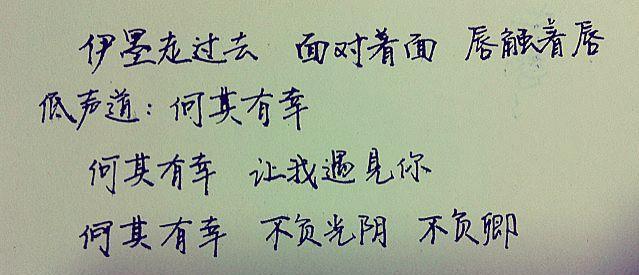 伊墨走过去 面对着面 唇触着唇
低声道：何其有幸
何其有幸 让我遇见你
何其有幸 不负光阴 不负卿